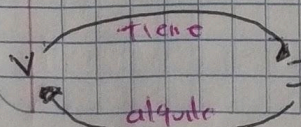 tiene
V
alquila